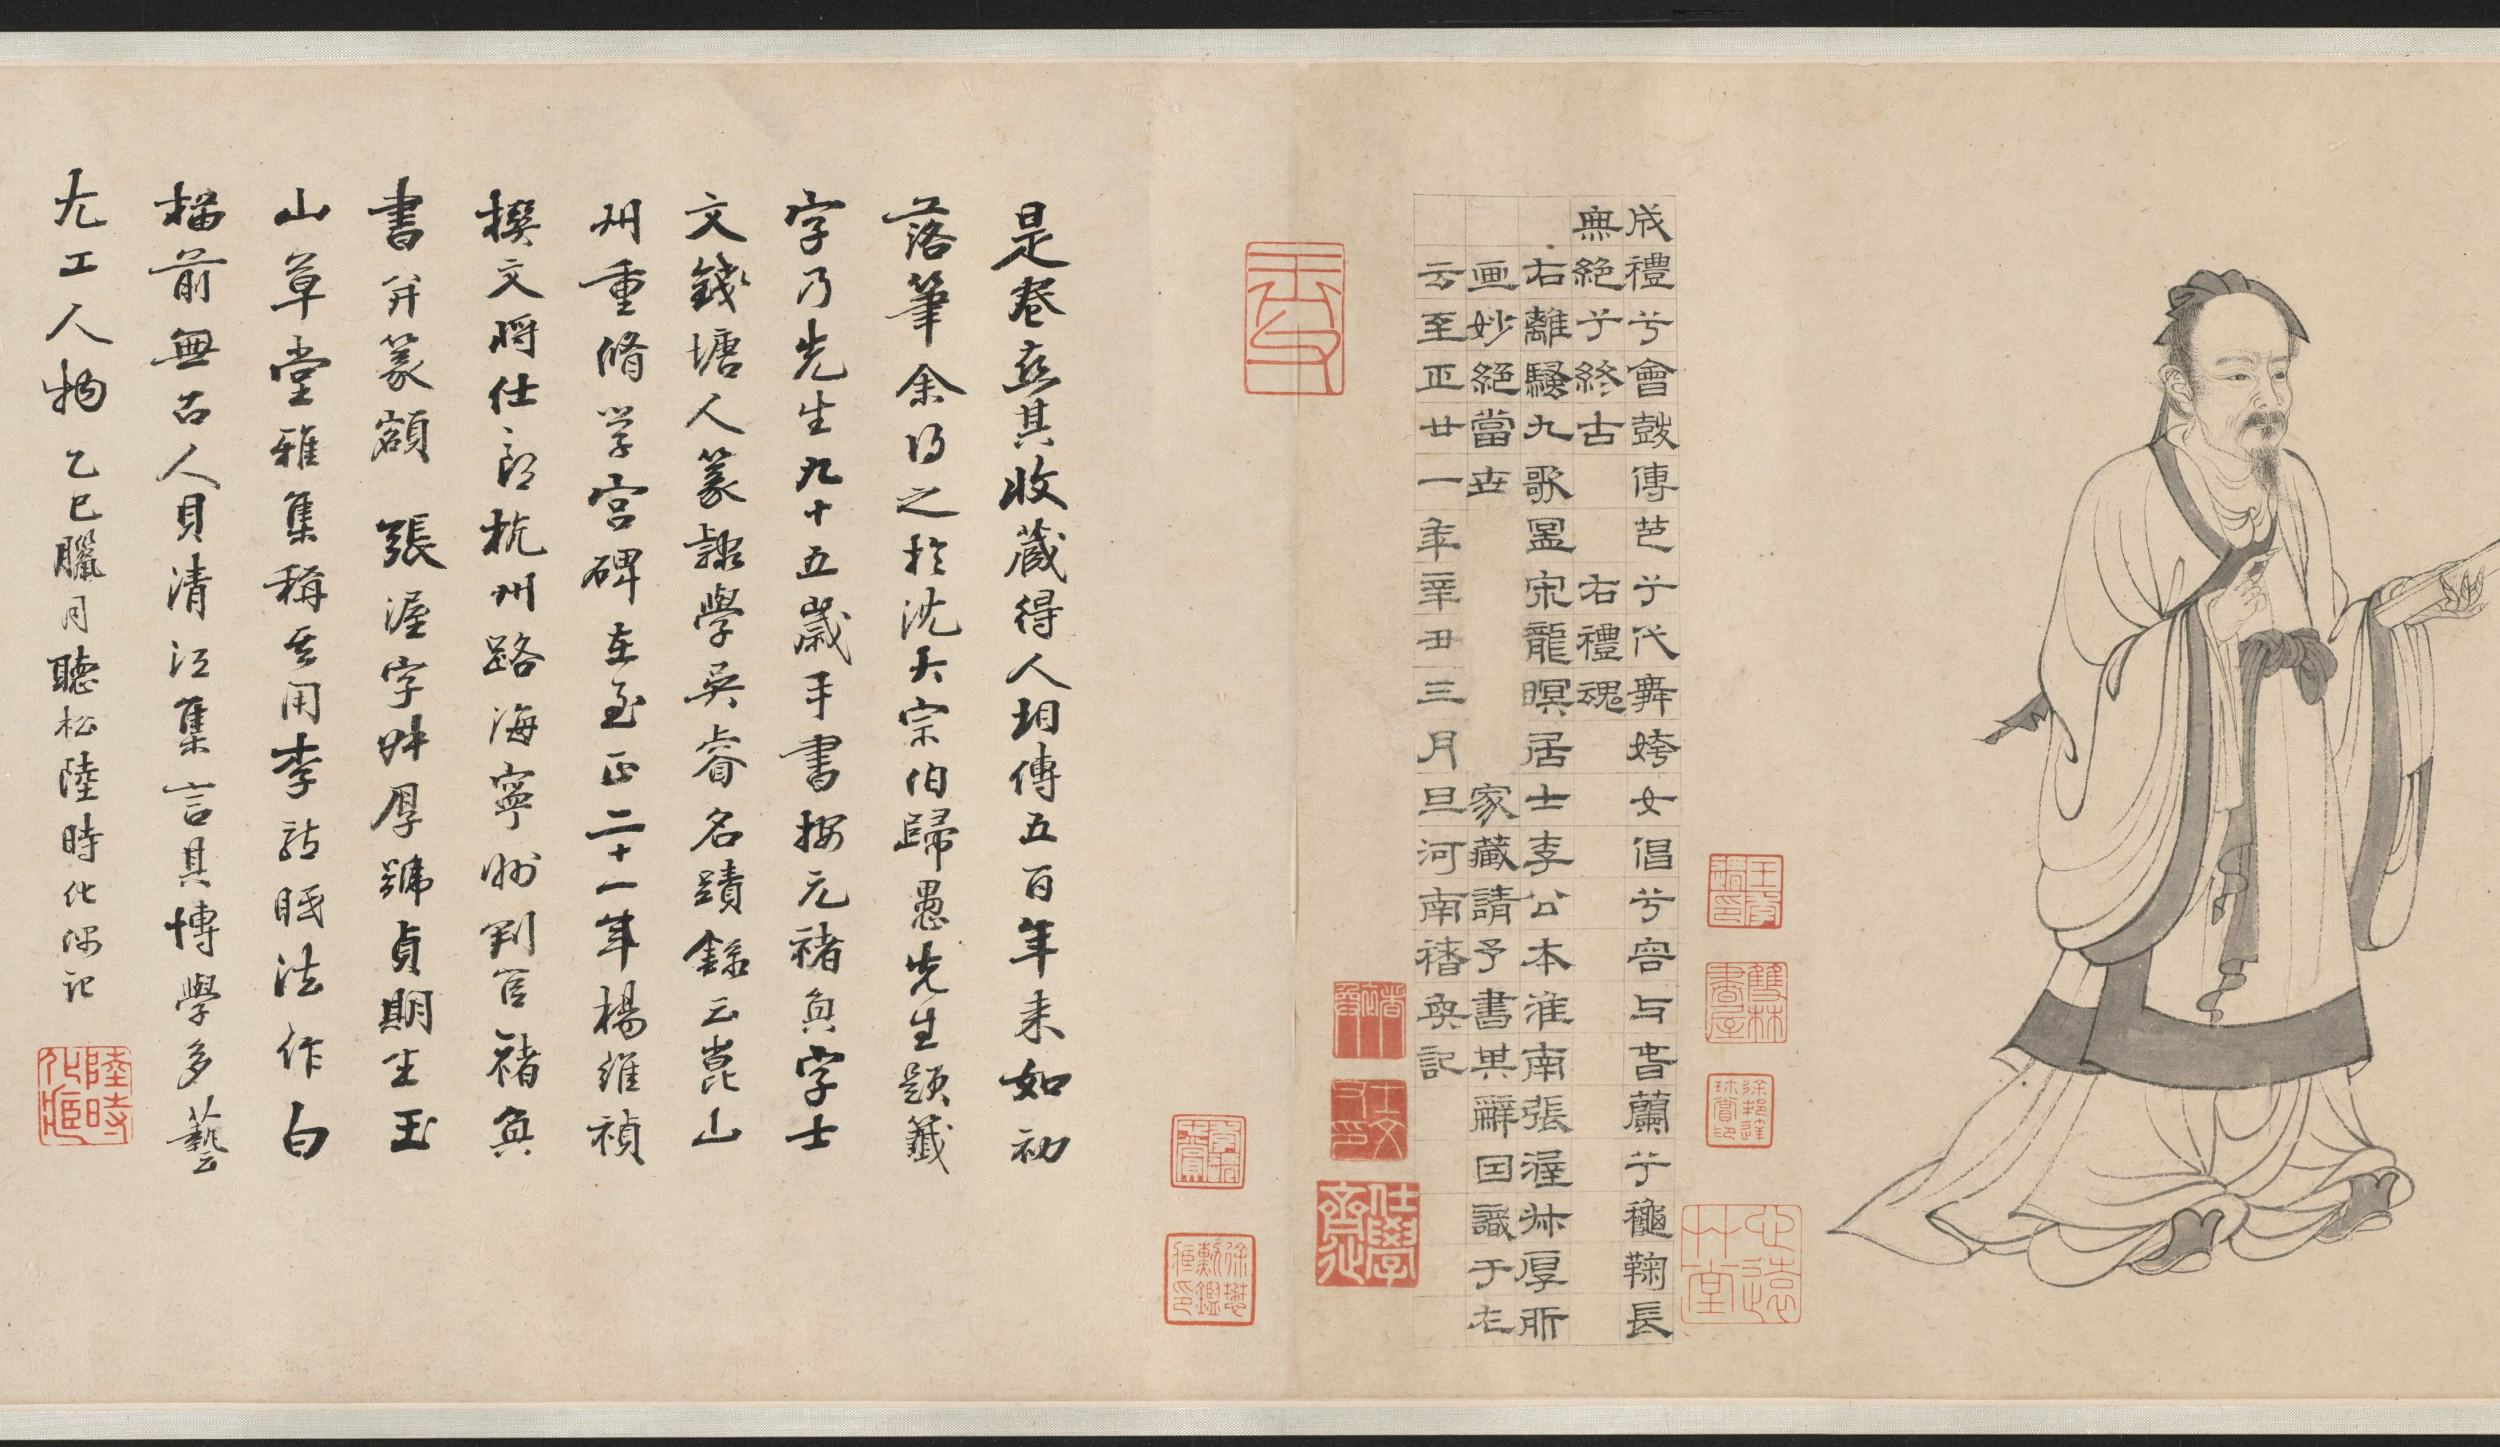 成禮兮會鼓傳芭兮代舞姱女倡兮容与春蘭兮秋鞠長
無絕兮終古 右禮魂
右離騷九歌圖宋龍瞑居士李公本淮南張渥叔厚所
画妙絕當世 家藏請予書其辭因識于左
云至正廿一年辛丑三月旦河南褚奐記
是卷並其收藏得人相傳五百年来如初
落筆余得之於沈大宗伯歸愚先生題籤
字乃先生九十五歲手書按元褚奐字士
文錢塘人篆隸學吳睿名蹟錄云崑山
州重脩学宮碑在至正二十一年楊維禎
撰文將仕郎杭州路海寧州判官褚奐
書并篆額 張渥字叔厚號貞期生玉
山草堂雅集稱其用李龍眠法作白
描前無古人貝清江集言其博學多藝
尤工人物 乙巳臘月聽松陸時化偶記
陸時化印
仕學齋
心遠草堂
雙林書屋